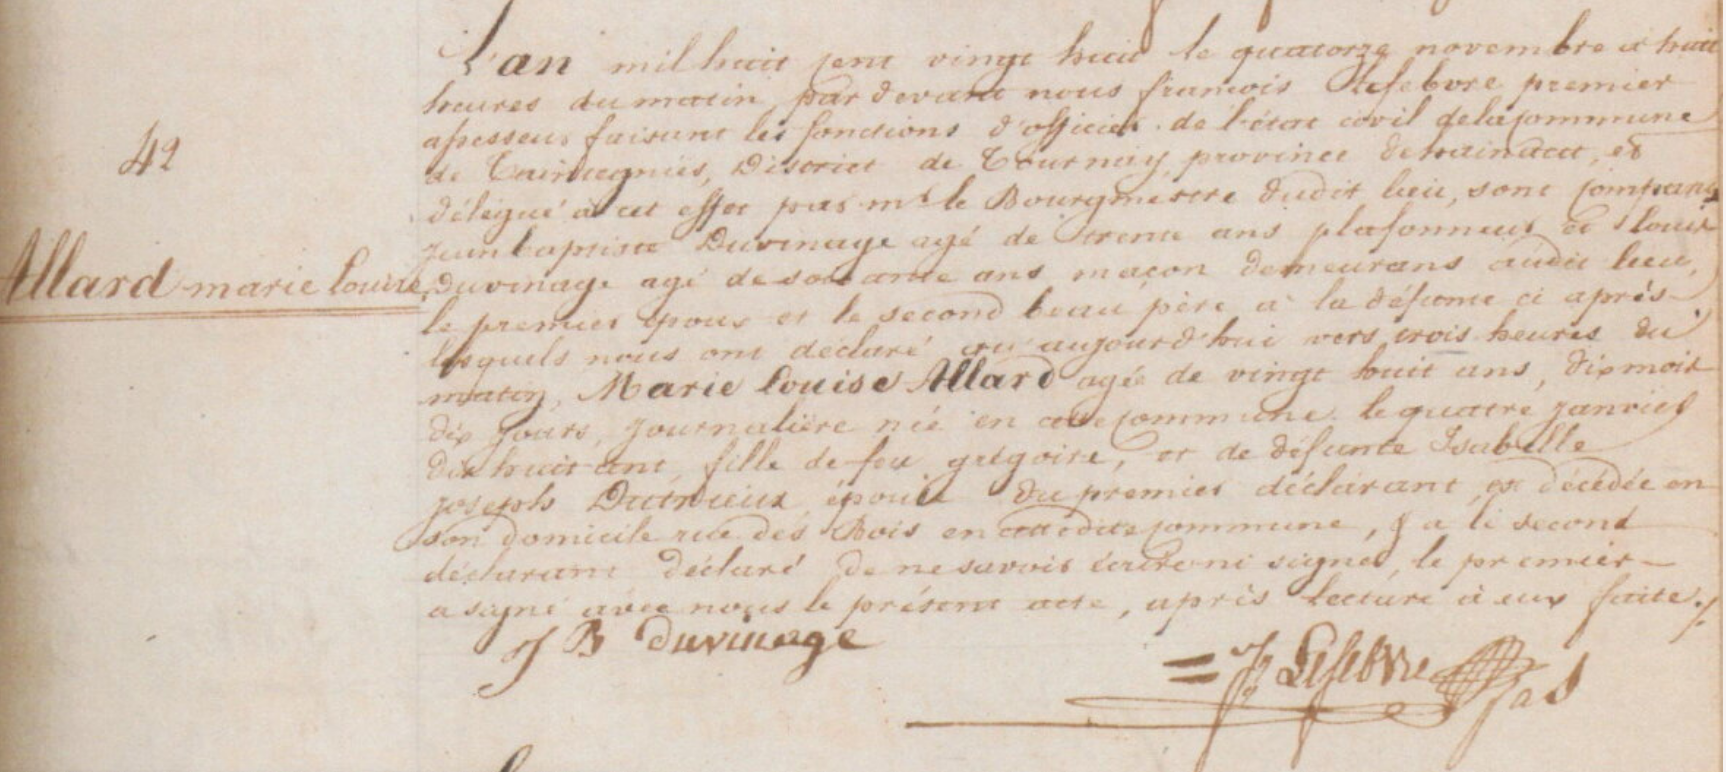 L'an mil huit cent vingt huit le quatorze novembre a huit
heures du matin, par devant nous francois Lefebvre premier
assesseur faisant les fonctions d'officier de l'état civil de la commune
42
de Taintegnies, District de Tournay, province de hainaut, et
délégué à cet effet par mr le Bourgmestre dudit lieu, sont comparus
jean baptiste Duvinage agé de trente ans plafonneur et Louis
Allard marie Louise
Duvinage agé de soixante ans maçon demeurans audit lieu,
le premier epoux et le second beau père a la défunte ci après
lesquels nous ont déclaré qu'aujourd'hui vers trois heures du
matin, Marie Louise Allard agée de vingt huit ans, dix mois
dix jours, journalière née en cette commune le quatre janvier
dix huit cent, fille de feu grégoire, et de défunte Isabelle
joseph Dutrieux épouse du premier déclarant, est décédée en
son domicile rue des Bois en cette dite commune, & a le second
déclarant déclaré de ne savoir écrire ni signer, le premier
a signé avec nous le présent acte, après lecture à eux faite ./.
J B duvinage
= fr Lefebvre